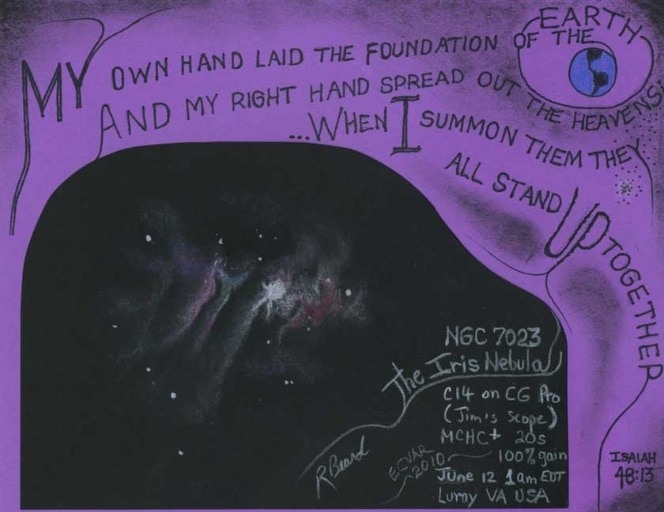 MY OWN HAND LAID THE FOUNDATION OF THE EARTH
AND MY RIGHT HAND SPREAD OUT THE HEAVENS
...WHEN I SUMMON THEM THEY
ALL STAND UP TOGETHER
NGC 7023
The Iris Nebula
C14 on CG Pro
(Jim's Scope)
MCHC+ 20s
100% gain
June 12 1am EDT
Luray VA USA
R Beard
ECVAR
2010
ISAIAH
48:13